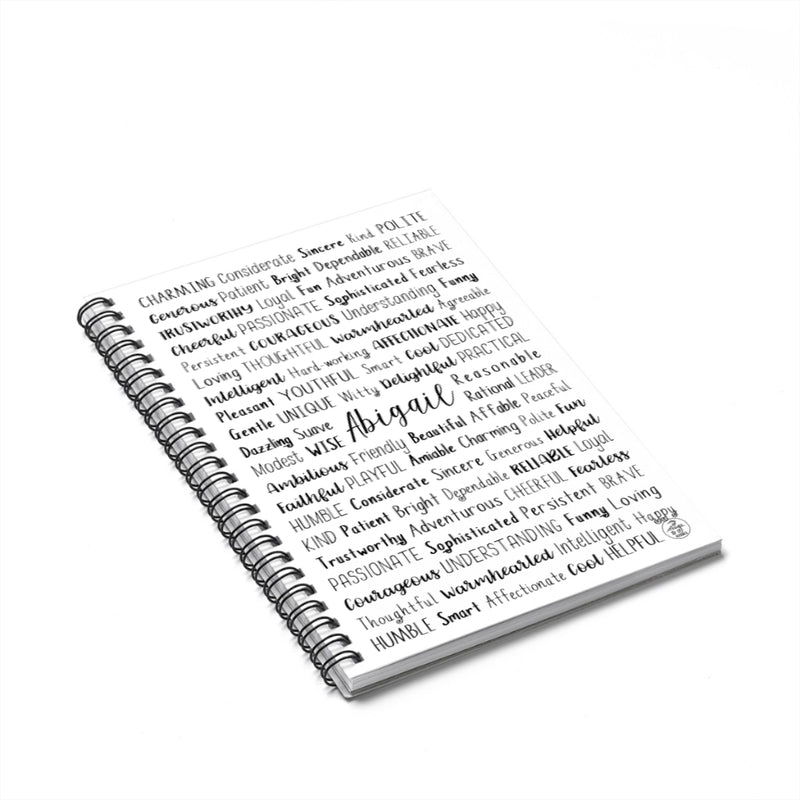 CHARMING Considerate Sincere Kind POLITE
Generous Patient Bright Dependable RELIABLE
TRUSTWORTHY Loyal Fun Adventurous BRAVE
Cheerful PASSIONATE Sophisticated Fearless
Persistent COURAGEOUS Understanding Funny
Loving THOUGHTFUL Warmhearted Agreeable
Intelligent Hard-working AFFECTIONATE Happy
Pleasant YOUTHFUL Smart Cool DEDICATED
Gentle UNIQUE Witty Delightful PRACTICAL
Dazzling Suave Abigail Reasonable
Modest WISE Rational LEADER
Ambitious Friendly Beautiful Affable Peaceful
Faithful PLAYFUL Amiable Charming Polite Fun
HUMBLE Considerate Sincere Generous Helpful
KIND Patient Bright Dependable RELIABLE Loyal
Trustworthy Adventurous CHEERFUL Fearless
PASSIONATE Sophisticated Persistent BRAVE
Courageous UNDERSTANDING Funny Loving
Thoughtful Warmhearted Intelligent Happy
HUMBLE Smart Affectionate Cool HELPFUL